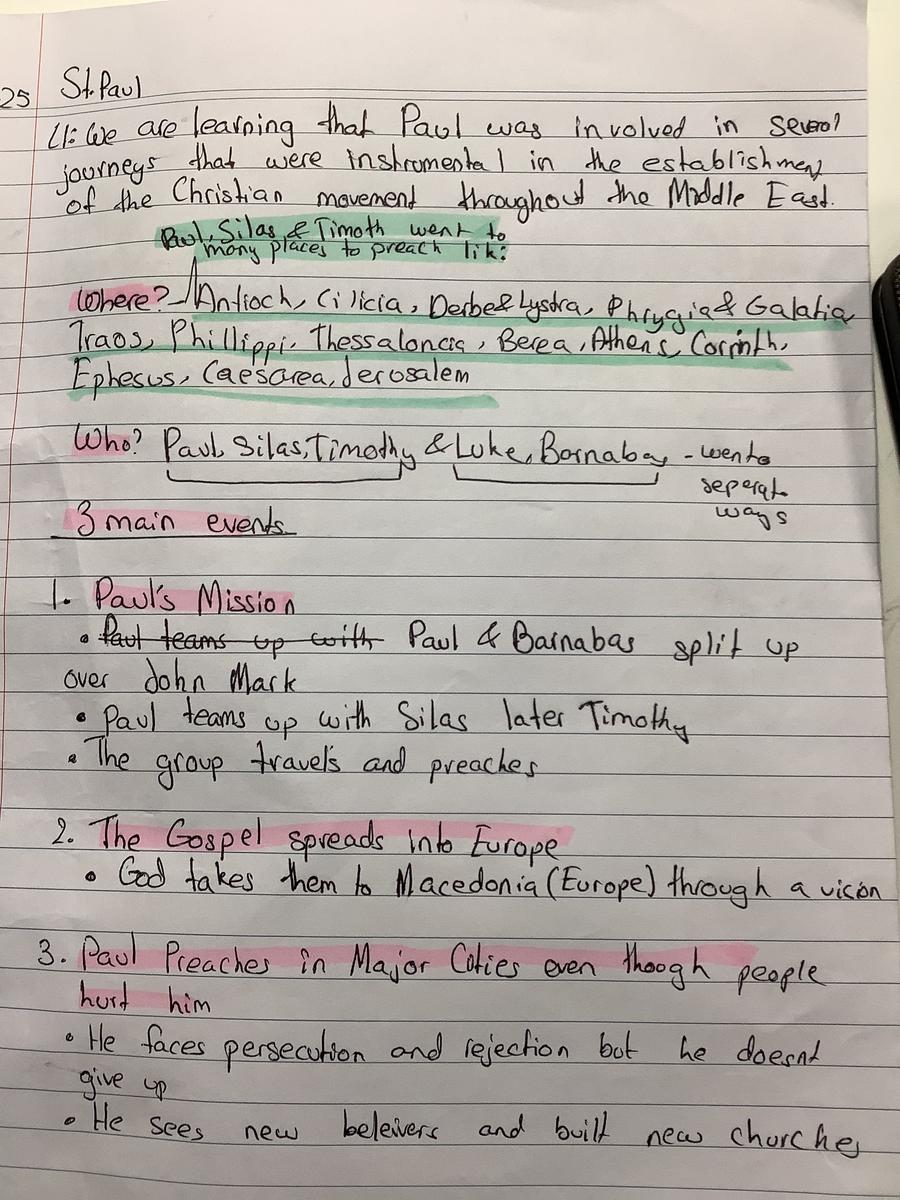 25 St. Paul
LI: We are learning that Paul was involved in several
journeys that were instrumental in the establishment
of the Christian movement throughout the Middle East.
Paul, Silas & Timoth went to
many places to preach lik:
Where? Antioch, Cilicia, Derbe & Lystra, Phrygia & Galatia
Traos, Phillippi, Thessaloncia, Berea, Athens, Corinth,
Ephesus, Caesarea, Jerosalem
Who? Paul, Silas, Timothy & Luke, Barnabas - went
seperate
ways
3 main events
1. Paul's Mission
• Paul teams up with Paul & Barnabas split up
over John Mark
• Paul teams up with Silas later Timothy
• The group travels and preaches
2. The Gospel spreads into Europe
• God takes them to Macedonia (Europe) through a vision
3. Paul Preaches in Major Cities even though people
hurt him
• He faces persecution and rejection but he doesnt
give up
• He sees new beleivers and built new churches